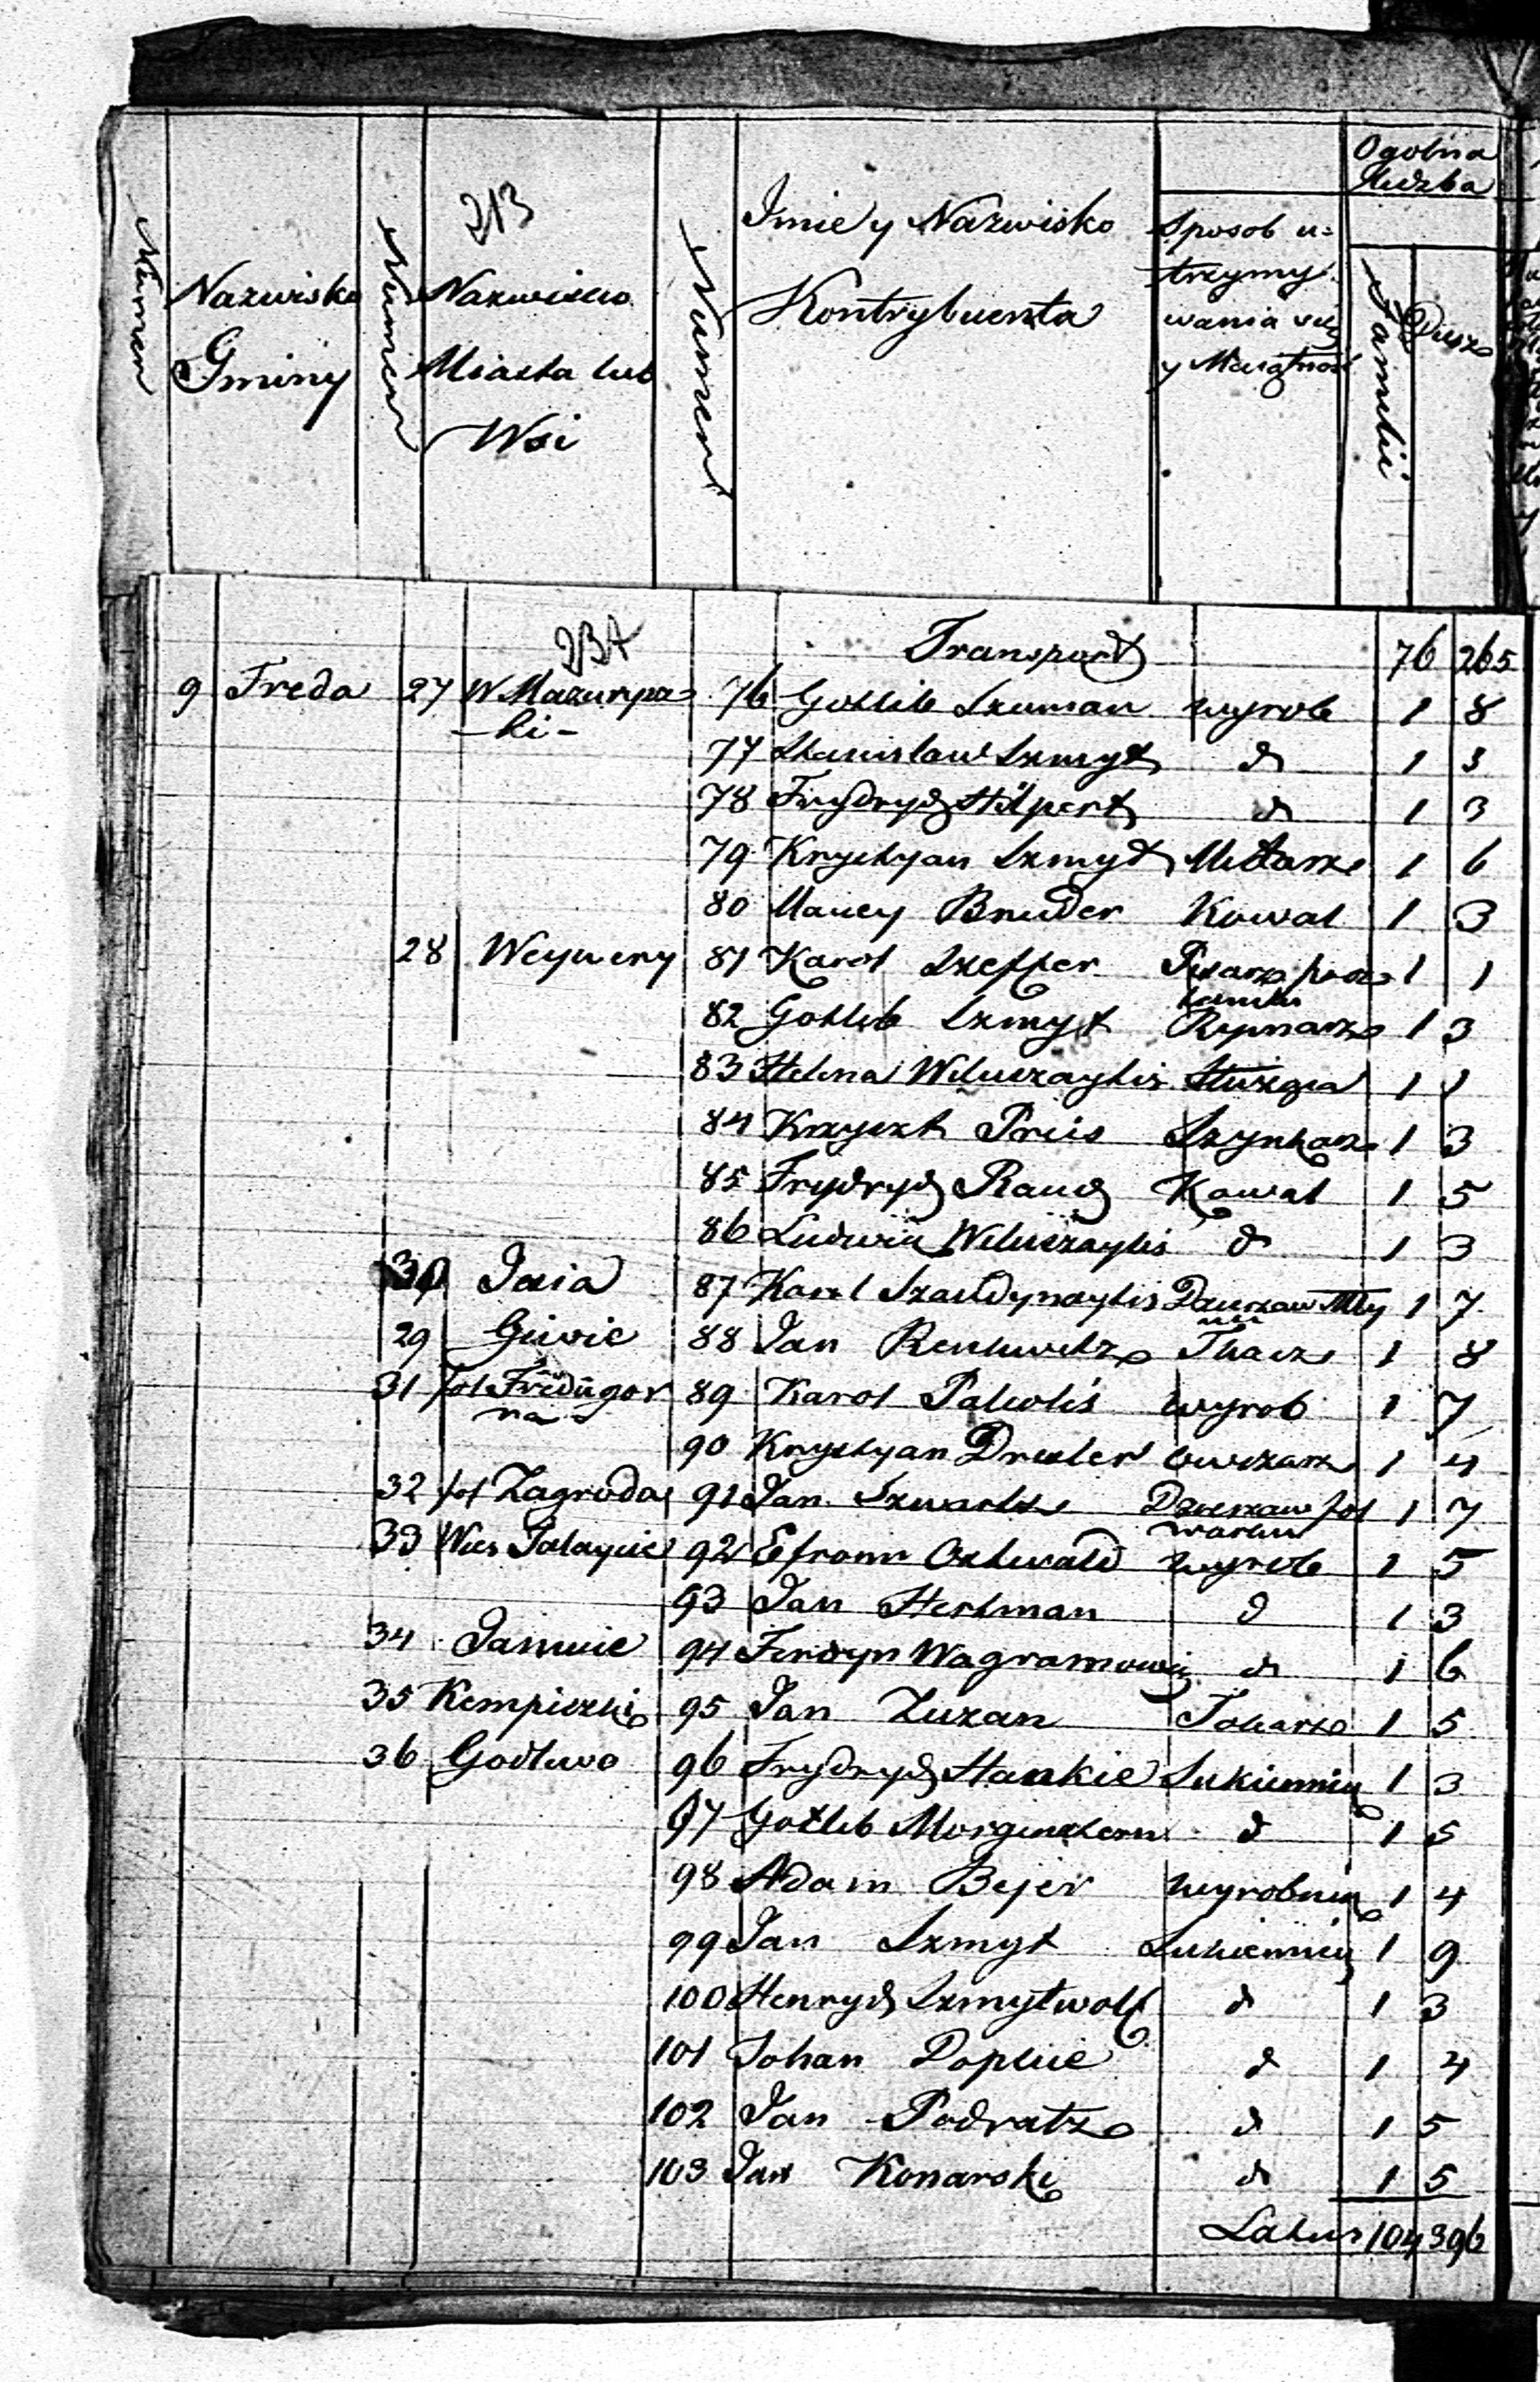 Ogolna
Liczba
213
Numer Nazwisko Gminy
Numer Nazwisko Miasta lub Wsi
Numer Imie y Nazwisko Kontrybuenta
Sposob u=
trzymy
wania się
y Maiątnos
Familii
Dusz
234
Transport 76 265
9 Freda 27 W Mazurysz 76 Gottlib Szuman wyrob 1 8
- ki -
77 Stanislaw Szmyt d 1 3
78 Frydrych Hilpert d 1 3
79 Krystyan Szmyt 1 6
80 Maciey Bruder Kowal 1 3
28 Weywery 81 Karol Szeffer Pisarz 1 1
82 Gotlib Szmyt Rymarz 1 3
83 Helena Wiluszaytis Służąca 1 1
84 Krzyszt Preis Szynkarz 1 3
85 Frydrych Rauch Kowal 1 5
86 Ludwik Wiluszaytis d 1 3
30 Jesia 87 Karol Szaudynaytis Dzierzaw Mły 1 7
29 Giwie 88 Jan Tkacz 1 8
31 fol Fredugor 89 Karol Paliolis wyrob 1 7
na
90 Krystyan Drexler owczarz 1 4
32 fol Zagroda 91 Jan Szwartz Dzierzaw fol 1 7
warku
33 Wies Palaycie 92 Efroim Osztwald wyrob 1 5
93 Jan Hertman d 1 3
34 Janucie 94 Ferdyn Wagramowicz d 1 6
35 Kempiszki 95 Jan Zuzan Tokarz 1 5
36 Godlewo 96 Frydrych Hankie Sukiennik 1 3
97 Gotlib Morgensztern d 1 5
98 Adam Bejer wyrobnik 1 4
99 Jan Szmyt Sukiennik 1 9
100 Henrych Szmytwolf d 1 3
101 Johan Popkie d 1 4
102 Jan Podratz d 1 5
103 Jan Konarski d 1 5
Latus 104 396